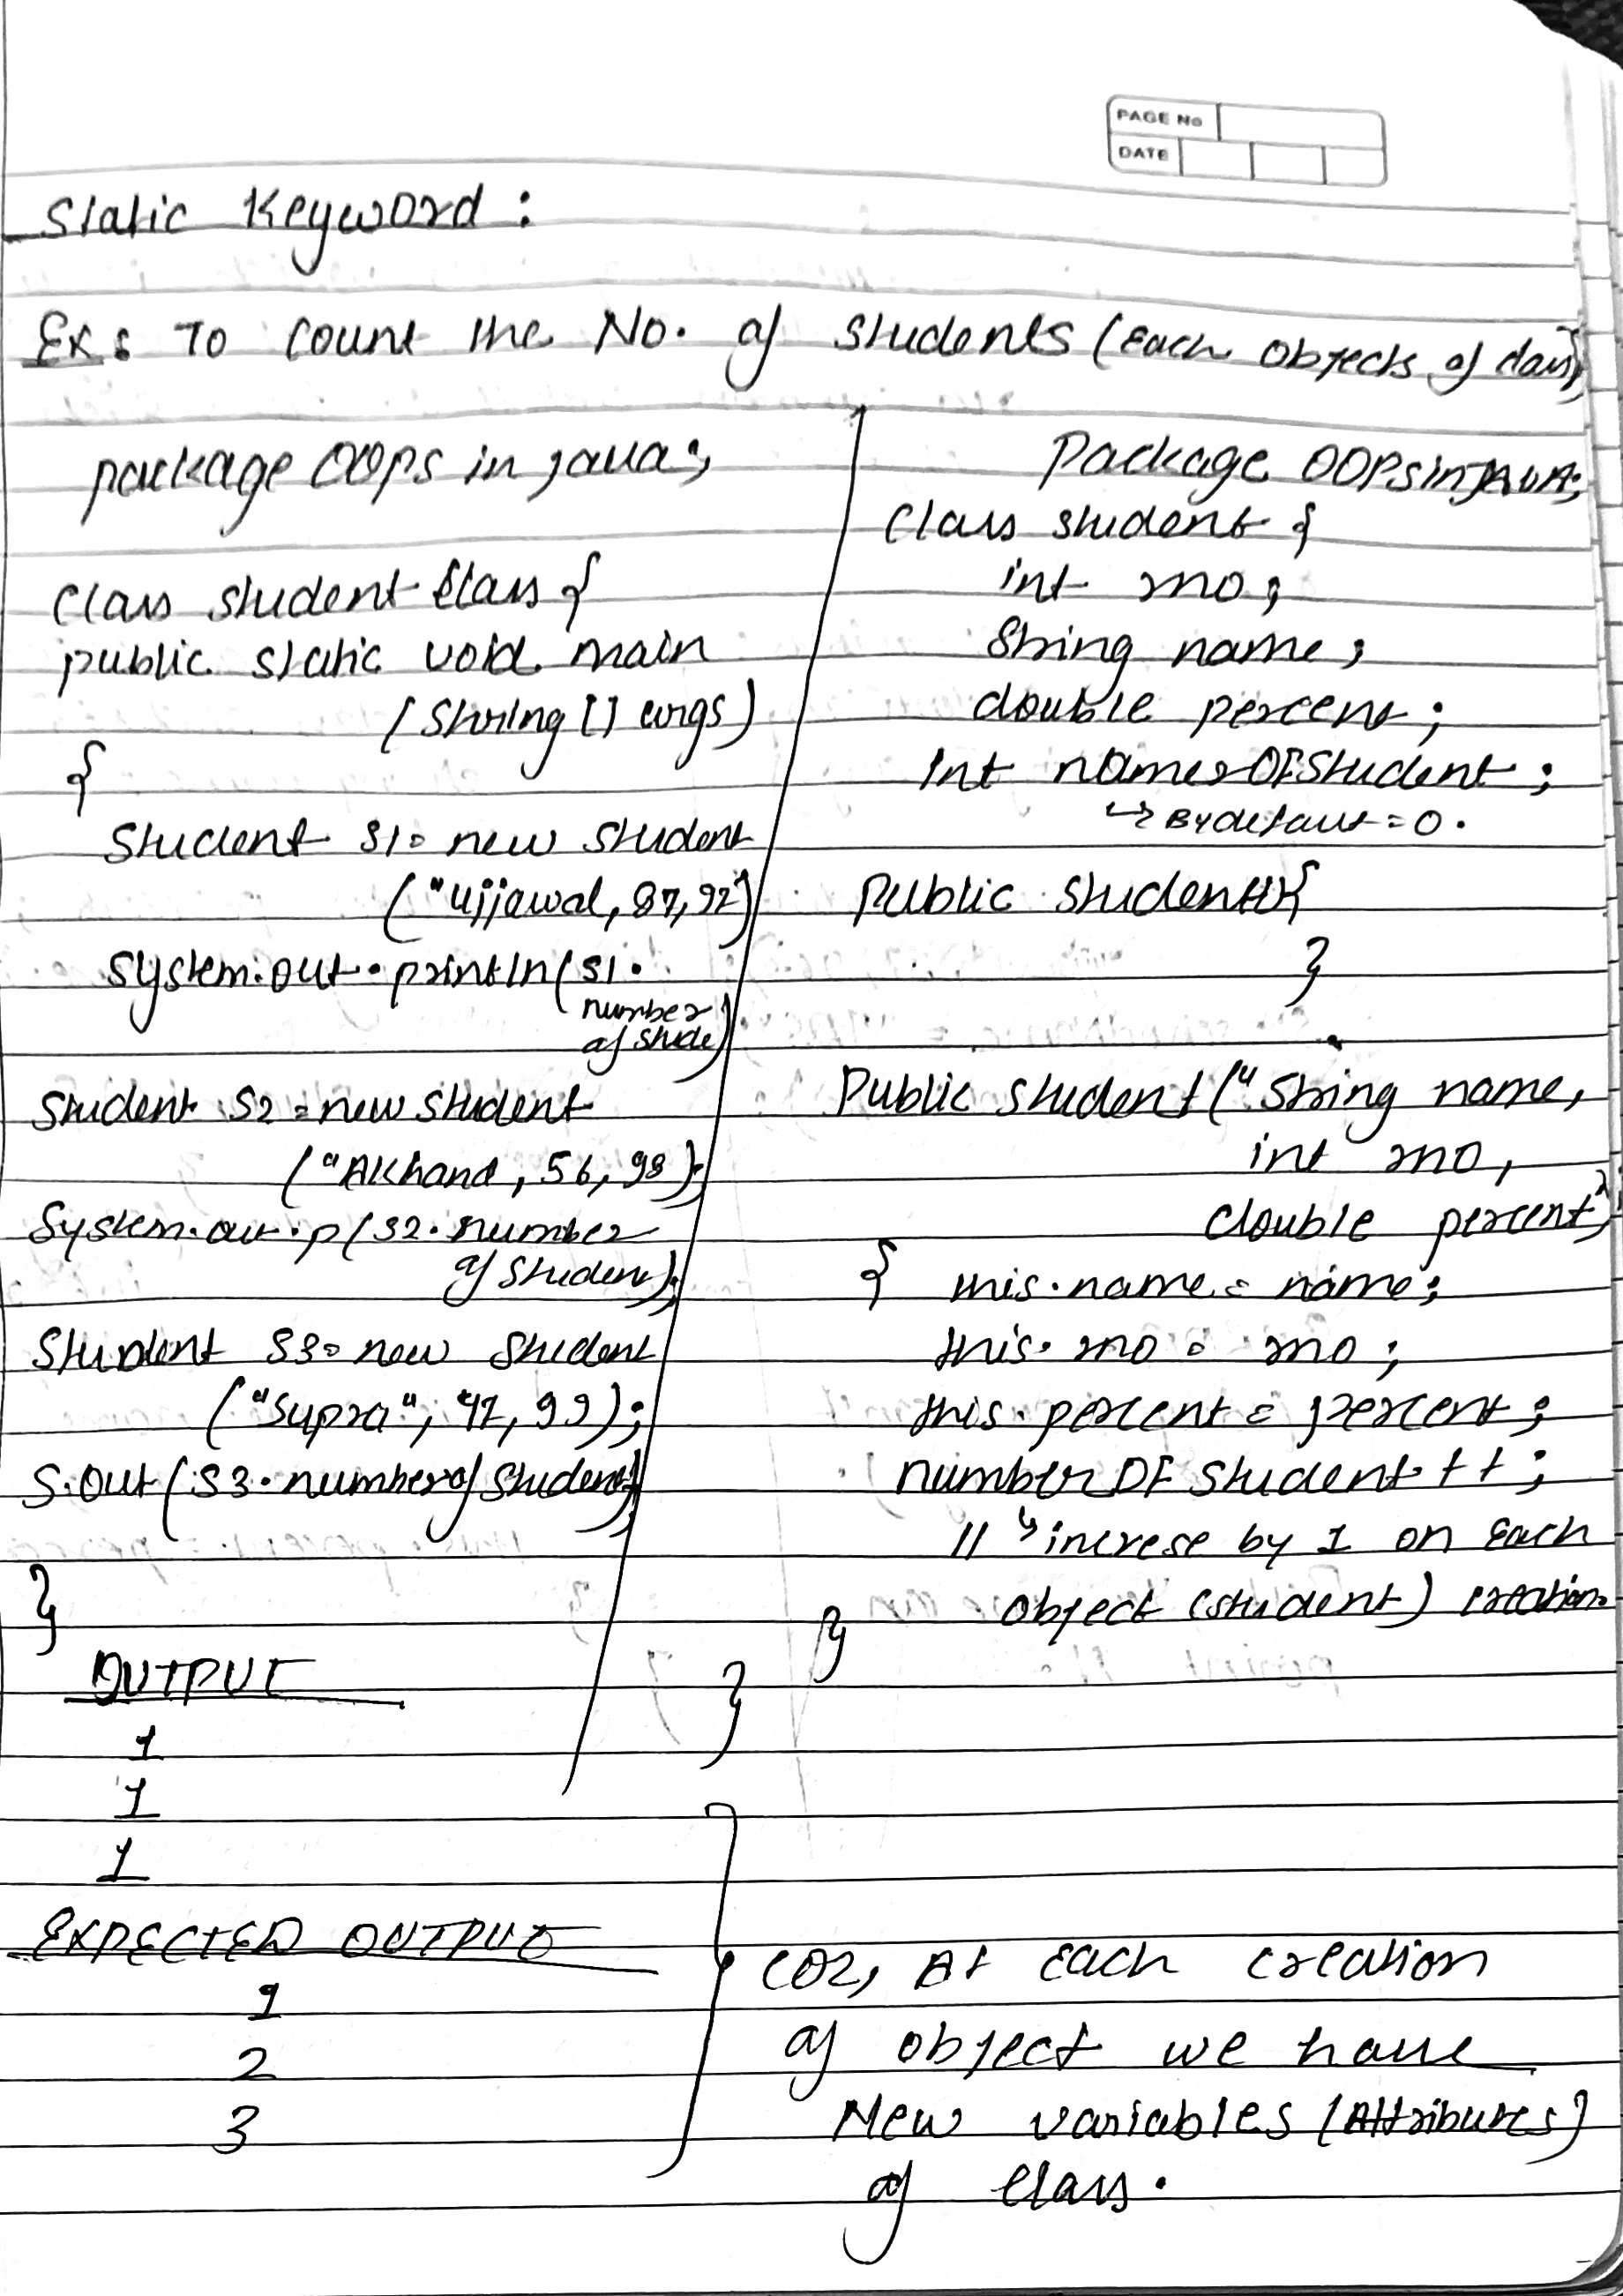 PAGE No
DATE
Static Keyword :
Ex : To count the No. of students (Each objects of class)
package OOPs in java;
class student class {
public static void main
(String [] args)
{
Student s1 = new student
("Ujjawal, 87, 92)
System.out.println(s1.
number
of stude)
Student s2 = new student
("Akhand, 56, 98);
System.out.p(s2.number
of student);
Student s3 = new student
("Supra", 47, 99);
S.out(s3.number of student);
}
OUTPUT
1
1
1
EXPECTED OUTPUT
1
2
3
Package OOPsinJAVA;
class student {
int rno;
String name;
double percent;
int numberOfStudent;
↳ By default = 0.
Public student(){
}
Public student("String name,
int rno,
double percent)
{ this.name = name;
this.rno = rno;
this.percent = percent;
numberOFstudent++;
// ↳ increse by 1 on each
object (student) creation.
}
}
COZ, At each creation
of object we have
New variables (Attributes)
of class.